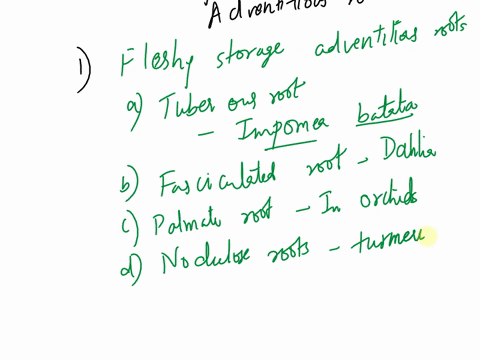 Adventitious
1) Fleshy storage adventitias roots
a) Tuberous root
- Impomea batata
b) Fasciculated root - Dahlia
c) Palmate root - In orchids
d) Nodulose roots - turmeri